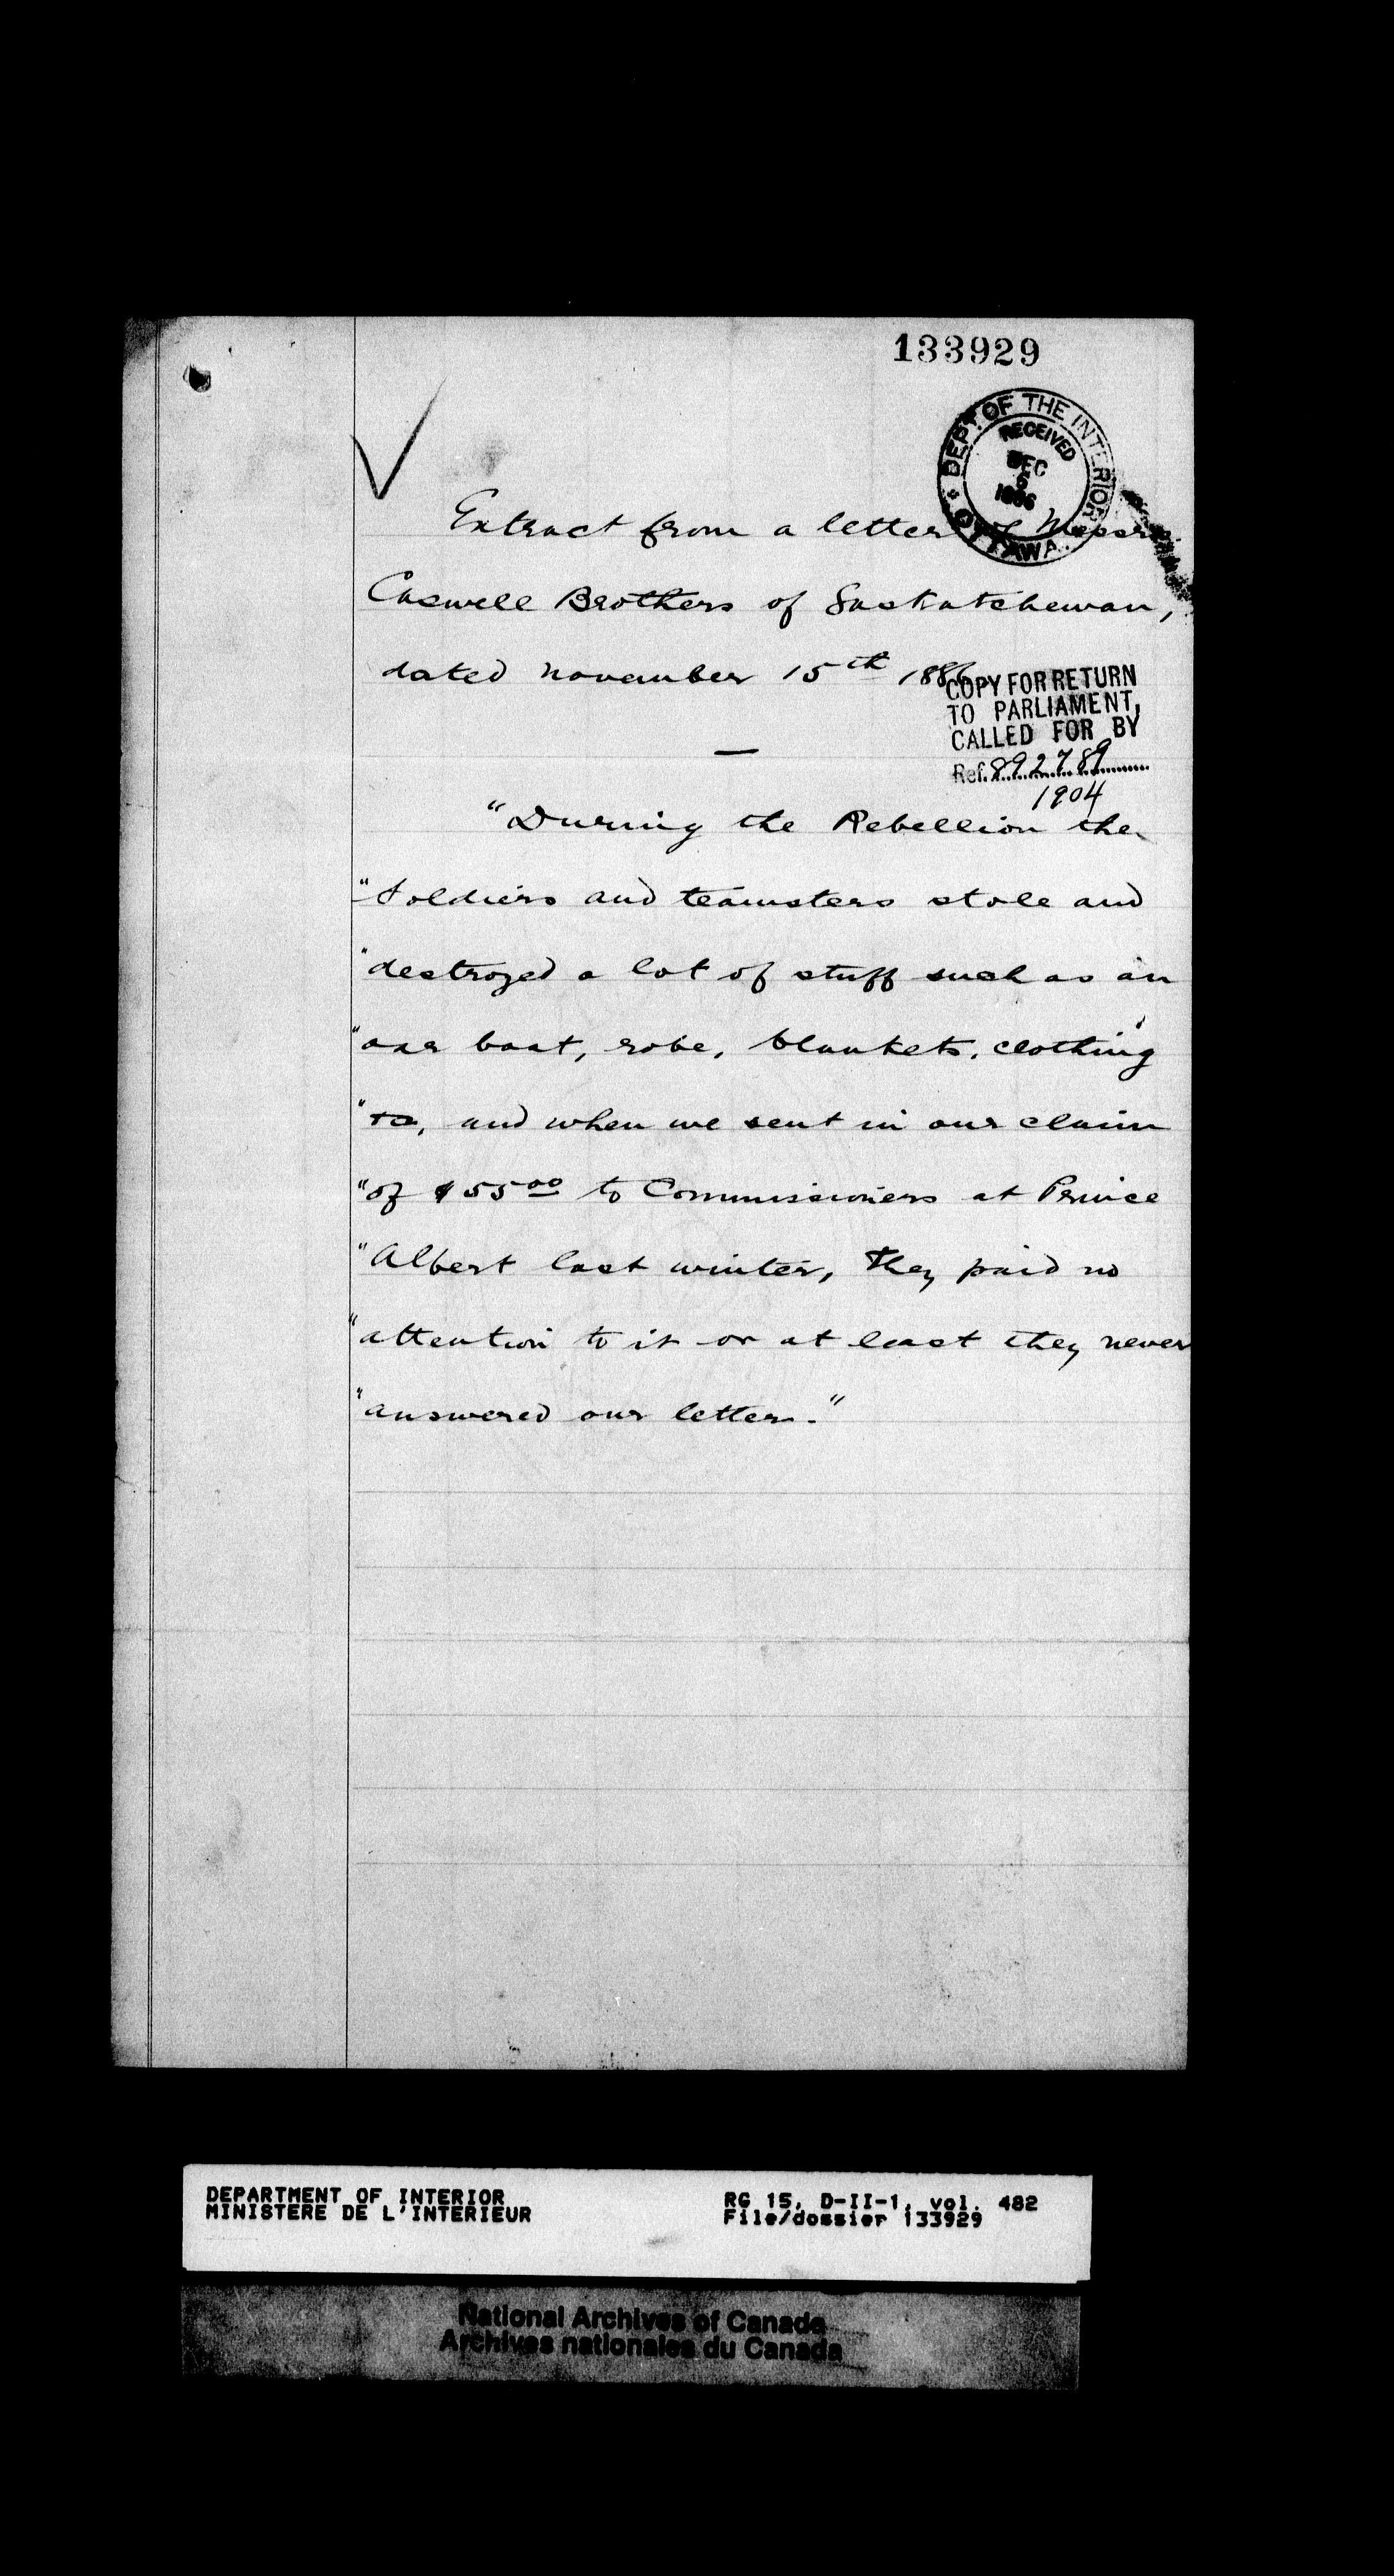 133929
DEPT. OF THE INTERIOR
RECEIVED
DEC
6
1886
OTTAWA.
Extract from a letter of Messrs.
Caswell Brothers of Saskatchewan,
dated November 15th 1886.
COPY FOR RETURN
TO PARLIAMENT,
CALLED FOR BY
Ref. 892789
1904
—
"During the Rebellion the
"Soldiers and teamsters stole and
"destroyed a lot of stuff such as an
"oar boat, robe, blankets, clothing
", and when we sent in our claim
"of $55 00 to Commissioners at Prince
"Albert last winter, they paid no
"attention to it or at least they never
"answered our letter."
DEPARTMENT OF INTERIOR
MINISTERE DE L'INTERIEUR
RG 15, D-II-1, vol. 482
File/dossier 133929
National Archives of Canada
Archives nationales du Canada